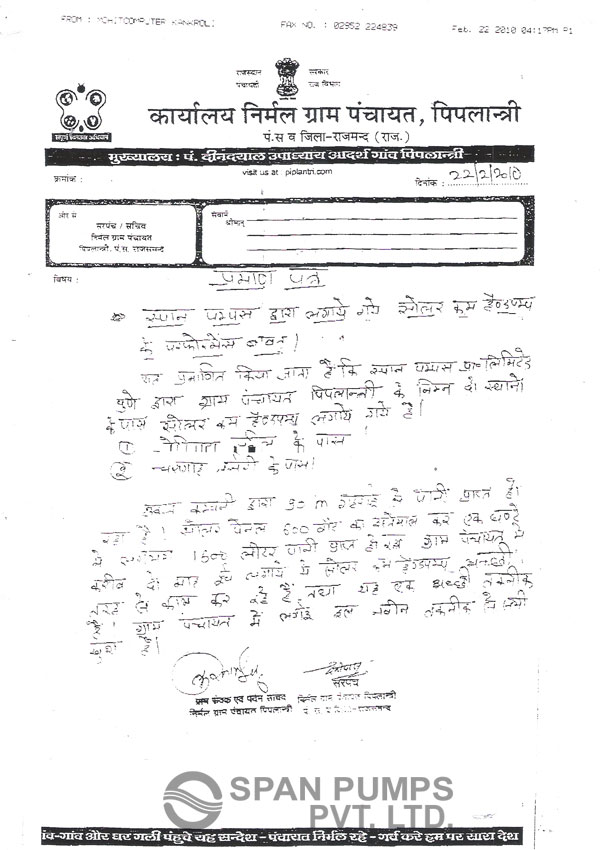 FROM : MOHITCOMPUTER KANKROLI FAX NO. : 02952 224839 Feb. 22 2010 04:17PM P1
राजस्थान सरकार
पंचायती राज विभाग
कार्यालय निर्मल ग्राम पंचायत, पिपलान्त्री
पं.स व जिला-राजमन्द (राज.)
मुख्यालय : पं. दीनदयाल उपाध्याय आदर्श गांव पिपलान्त्री
visit us at : piplantri.com
क्रमांक : दिनांक : 22/2/2010
ओर से
सरपंच / सचिव
निर्मल ग्राम पंचायत
पिपलान्त्री, पं.स. राजसमन्द
सेवार्थ
श्रीमान्
विषय : प्रमाण पत्र
स्पान पम्पस द्वारा लगाये गये सोलर कम हैण्डपम्प
के परफोरमेंस बाबत।
प्रमाणित किया जाता है कि स्पान पम्पस प्रा० लिमिटेड
पुणे द्वारा ग्राम पंचायत पिपलान्त्री के निम्न दो स्थानों
के पास सोलर कम हैण्डपम्प लगाये गये हैं।
① के पास।
② के पास।
कम्पनी द्वारा 90 m गहराई से पानी प्राप्त हो
रहा है। सोलर पेनल 600 वॉट का कर एक घण्टे
में लगभग 1600 लीटर पानी प्राप्त हो रहा ग्राम पंचायत में
करीब दो माह पूर्व लगाये ये सोलर कम हैण्डपम्प अच्छी
तरह से काम कर रहे हैं तथा यह एक अच्छी तकनीक
है। ग्राम पंचायत में लगाई इस नवीन तकनीक से सभी
खुश है।
सरपंच
निर्मल ग्राम पंचायत पिपलान्त्री निर्मल ग्राम पंचायत पिपलान्त्री
पं. स. राजसमन्द
SPAN PUMPS
PVT. LTD.
गांव-गांव और घर गली पंहुचे यह सन्देश - पंचायत निर्मल रहे - गर्व करे हम पर सारा देश